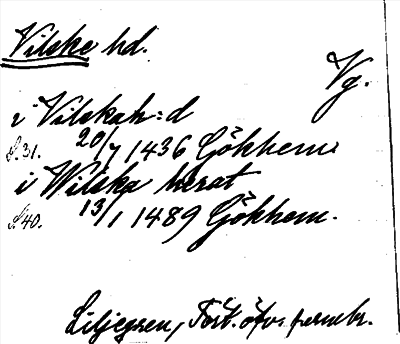 Vilske hd.
Vg.
i Vilskah:d
S.31. 20/7 1436 Gökhem
i Wilska herat
S.40. 13/1 1489 Gökhem.
Liljegren, Fört. öfv. permbr.